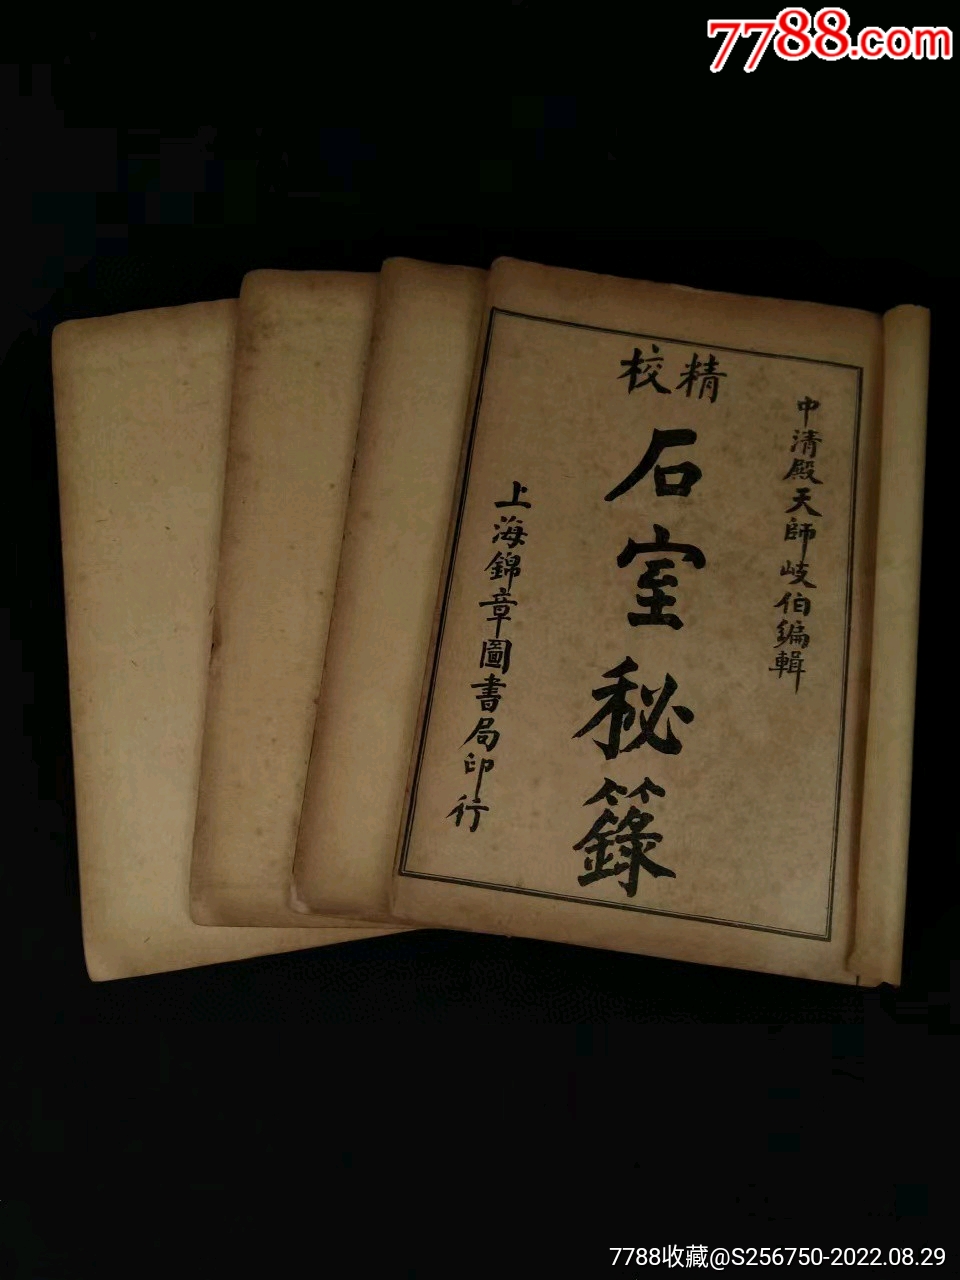 7788.com
精校
中清殿天師岐伯編輯
石室秘籙
上海錦章圖書局印行
7788收藏@S256750-2022.08.29